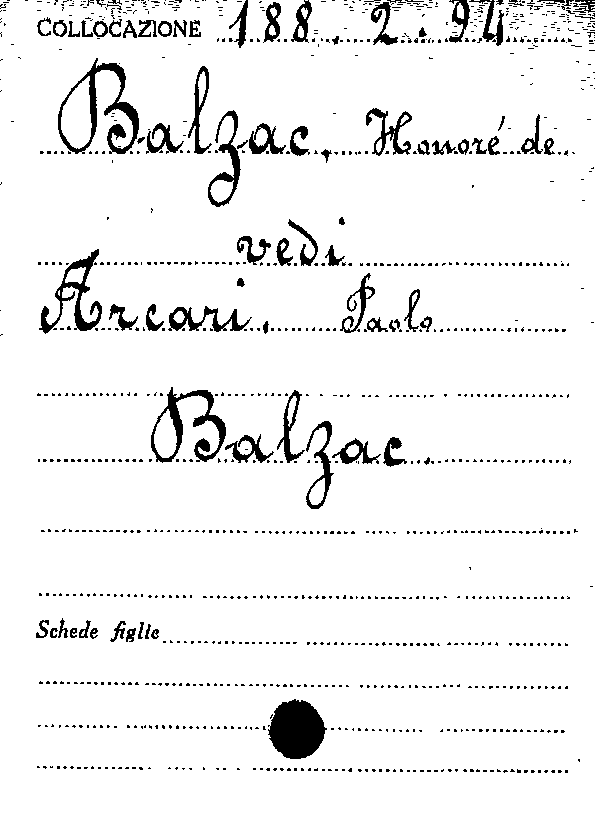 COLLOCAZIONE 188.2.94
Balzac, Honoré de
vedi
Arcari, Paolo
Balzac.
Schede figlie